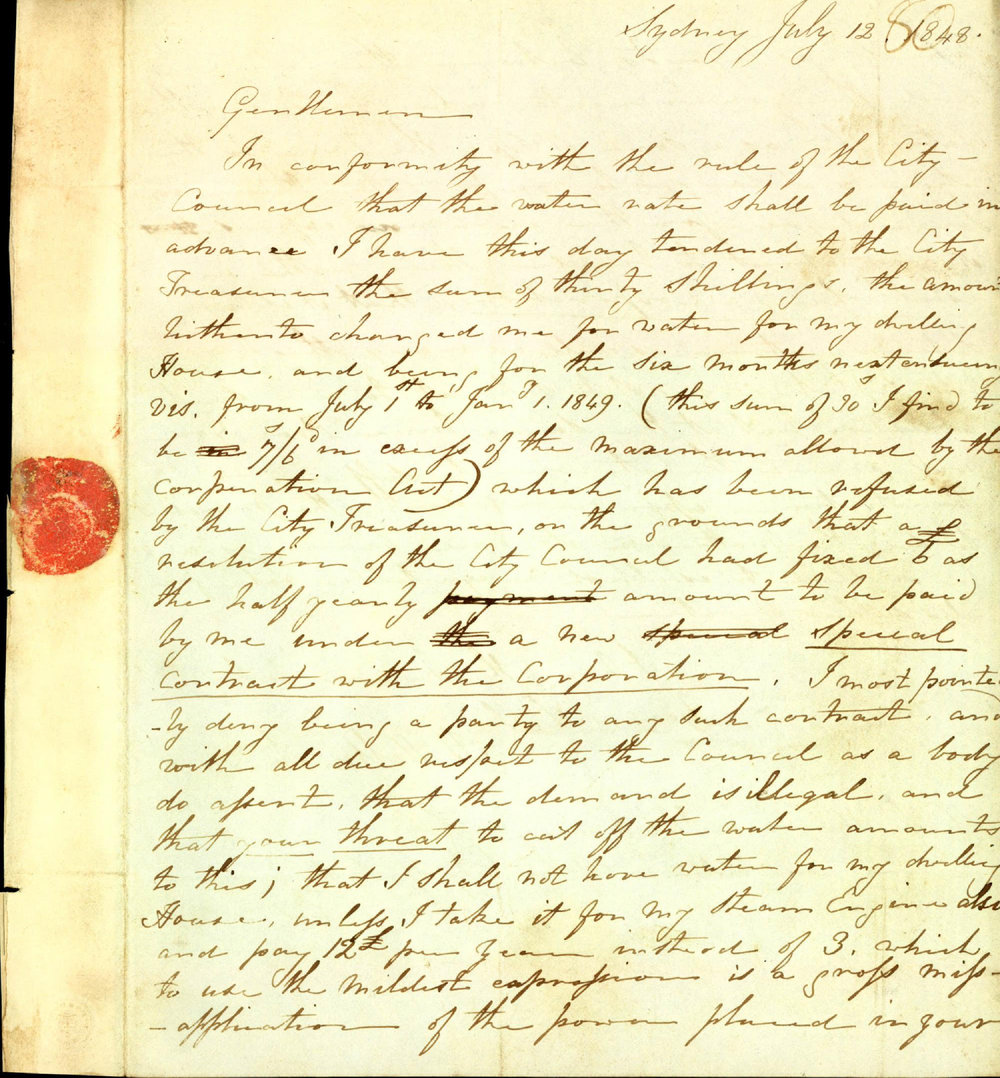 Sydney July 12. 1848.
80
Gentlemen
In conformity with the rule of the City
Council that the water rate shall be paid in
advance I have this day tendered to the City
Treasurer the sum of thirty Shillings, the amoun
hitherto charged me for water for my dwelling
House, and being for the six months next ensuing
vis. from July 1st to Jany 1. 1849. (this sum of 30s I find to
be in 7s/6d in excess of the maximum allowed by the
corporation Act) which has been refused
by the City Treasurer, on the grounds that a
resolution of the City Council had fixed £6 as
the half yearly payment amount to be paid
by me under the a new special special
contract with the Corporation. I most pointed
-ly deny being a party to any such contract, and
with all due respect to the Council as a body
do assent, that the demand is illegal, and
that your threat to cut off the water amounts
to this; that I shall not have water for my dwelling
House, unless I take it for my Steam Engine also
and pay 12£ per year instead of 3. which
to use the mildest expression is a gross miss-
-application of the power placed in your